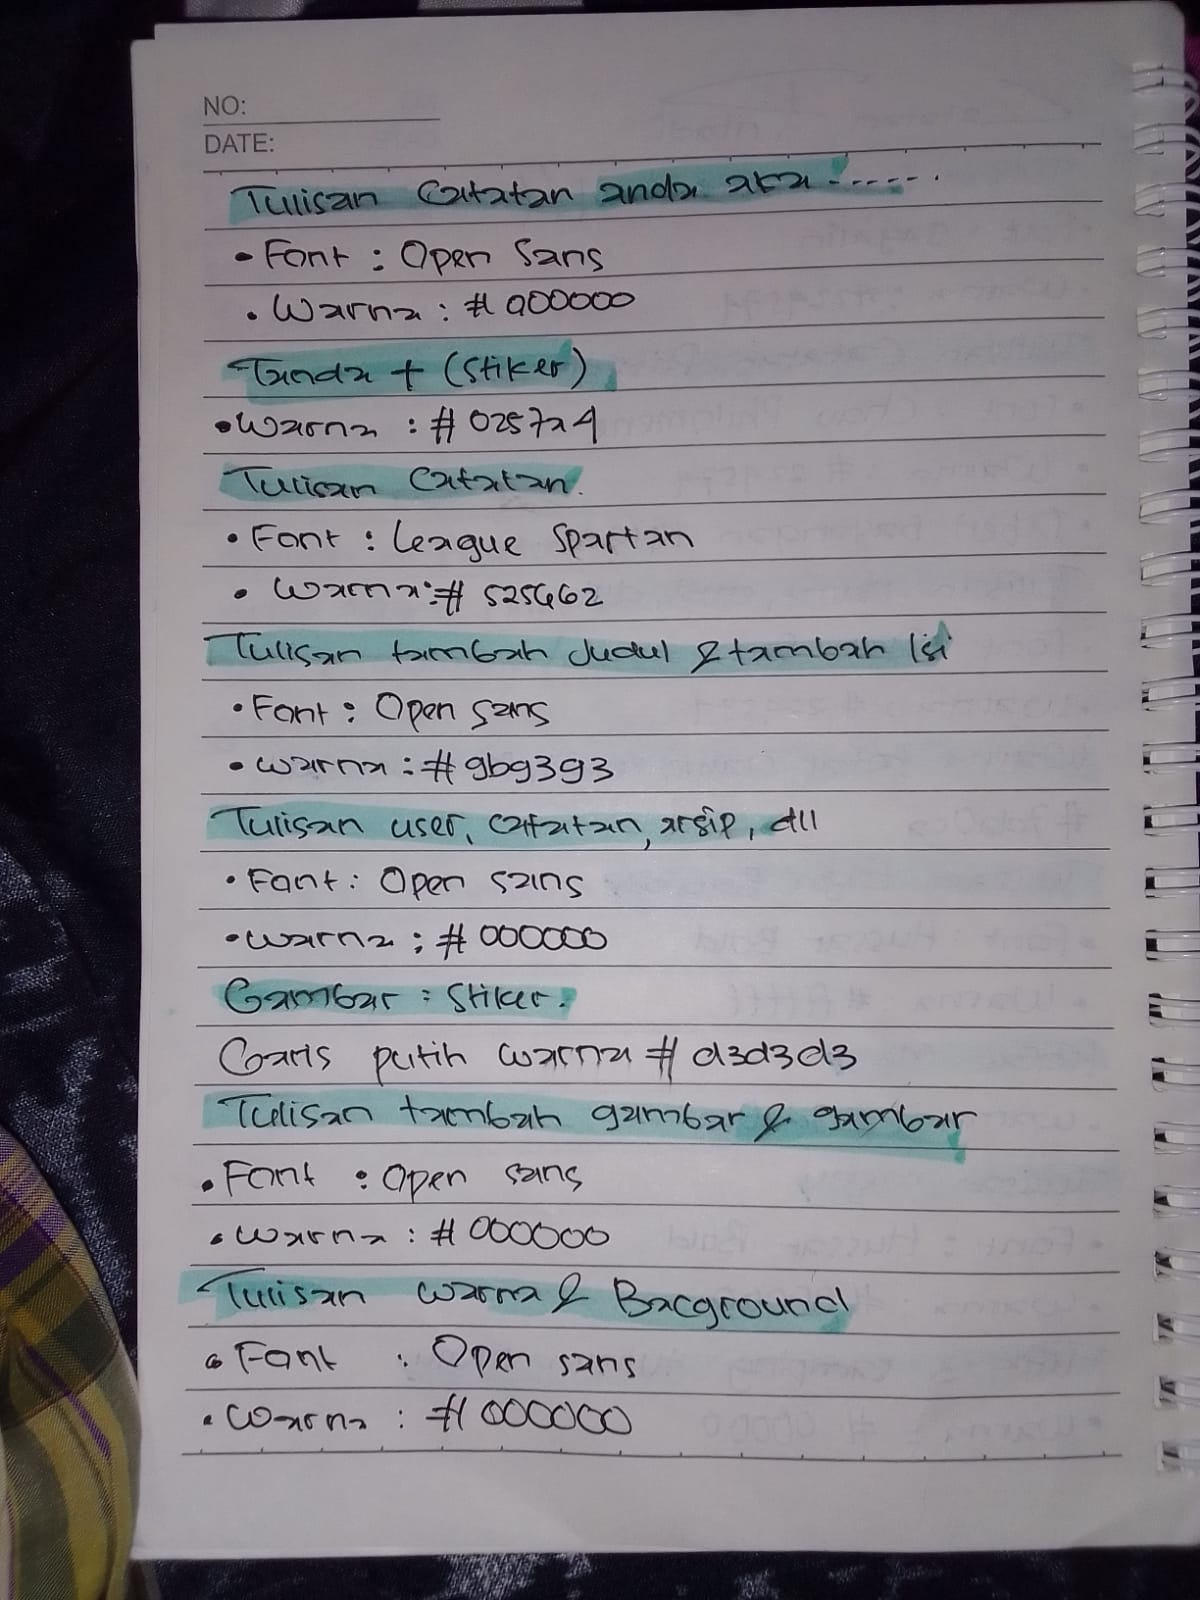 NO:
DATE:
Tulisan Catatan anda aka ------.
• Font : Open Sans
• Warna : #000000
Tanda + (Stiker)
• Warna : #0257a4
Tulisan Catatan.
• Font : League Spartan
• Warna : # 525662
Tulisan tambah Judul & tambah Isi
• Font : Open sans
• Warna : #9b9393
Tulisan user, catatan, arsip, dll
• Font : Open sans
• Warna ; #000000
Gambar : Stiker.
Garis putih warna # d3d3d3
Tulisan tambah gambar & gambar
• Font : Open sans
• Warna : #000000
Tulisan warna & Bacground
• Font : Open sans
• Warna : #000000